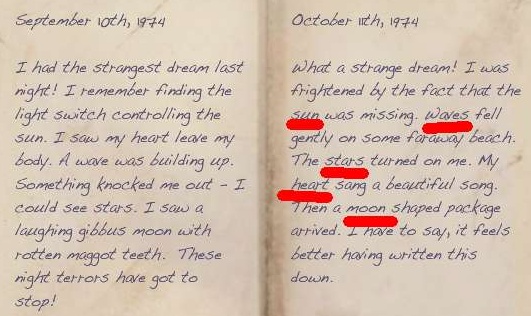 September 10th, 1974
I had the strangest dream last
night! I remember finding the
light switch controlling the
sun. I saw my heart leave my
body. A wave was building up.
Something knocked me out - I
could see stars. I saw a
laughing gibbus moon with
rotten maggot teeth. These
night terrors have got to
stop!
October 11th, 1974
What a strange dream! I was
frightened by the fact that the
sun was missing. Waves fell
gently on some faraway beach.
The stars turned on me. My
heart sang a beautiful song.
Then a moon shaped package
arrived. I have to say, it feels
better having written this
down.